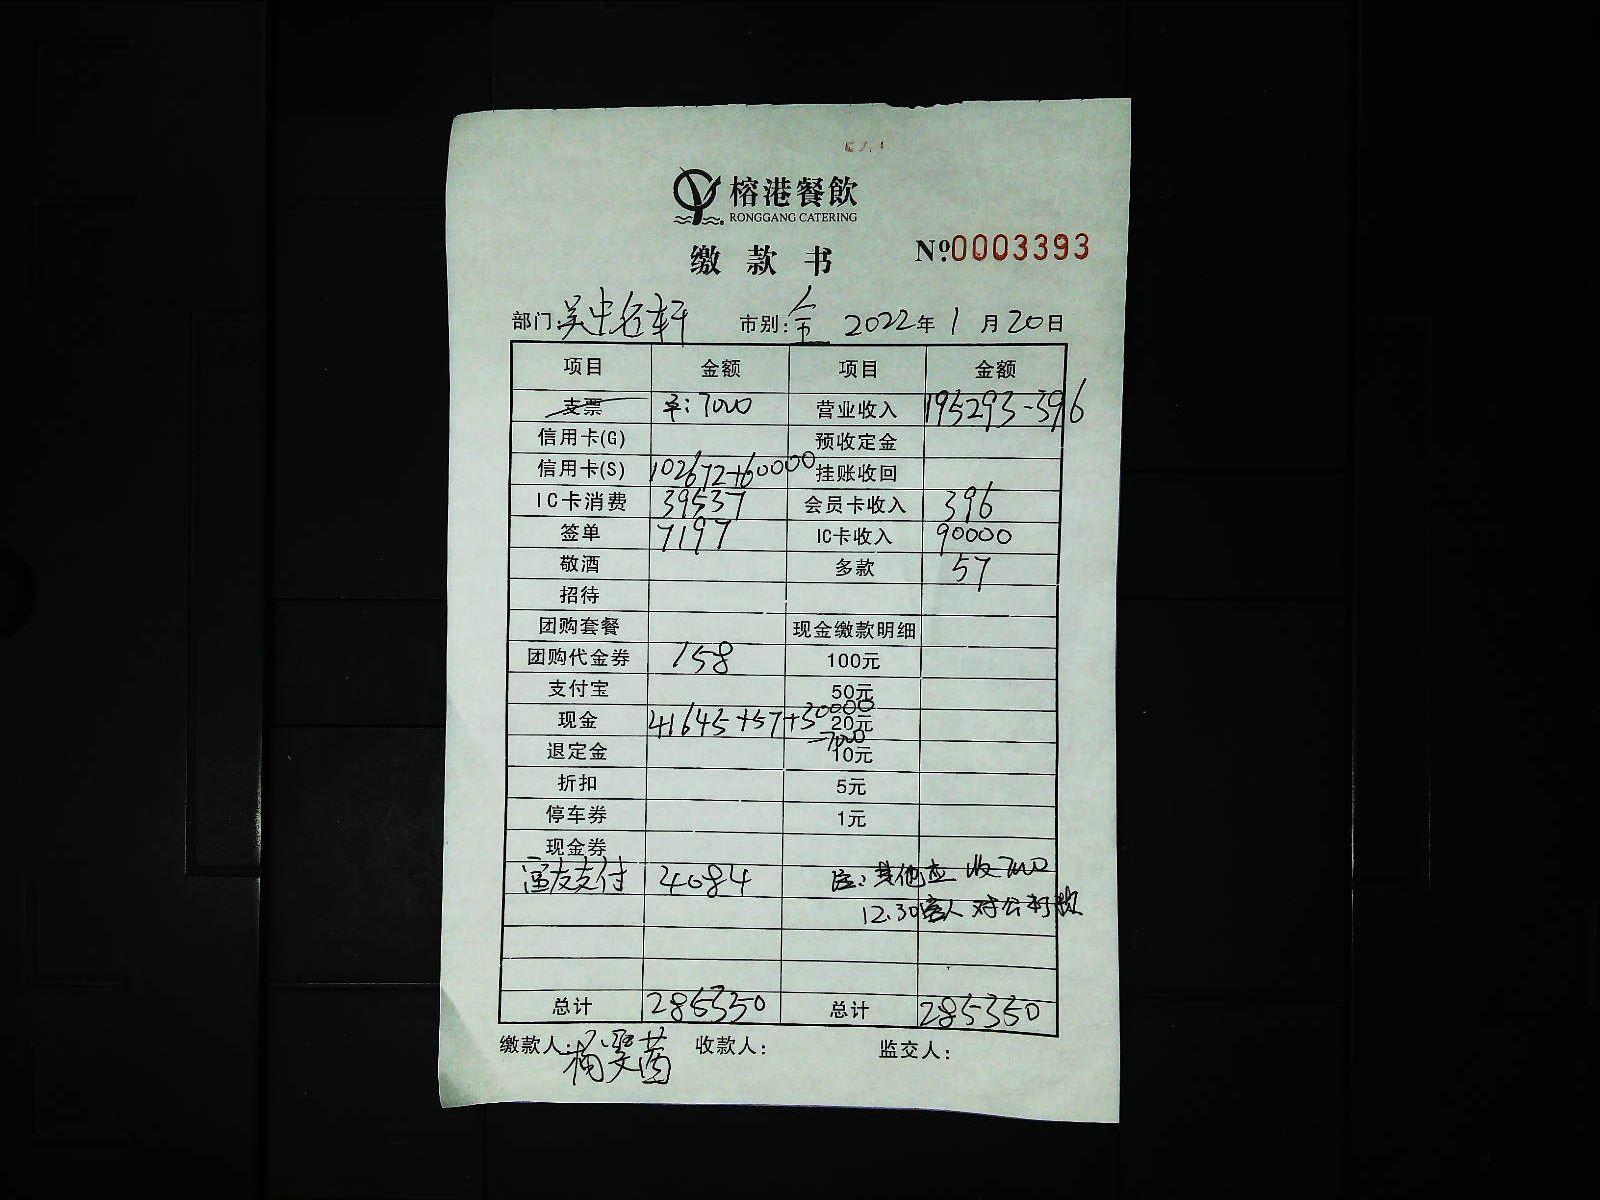 榕港餐飲
RONGGANG CATERING
缴款书 Nº:0003393
部门:吴中名轩 市别:全 2022年1月20日
项目 金额 项目 金额
支票 7000 营业收入 195293-396
信用卡(G) 预收定金
信用卡(S) 102672+60000 挂账收回
IC卡消费 39537 会员卡收入 396
签单 7197 IC卡收入 90000
敬酒 多款 57
招待
团购套餐 现金缴款明细
团购代金券 158 100元
支付宝 50元
现金 41645+57+30000 20元
-7000
退定金 10元
折扣 5元
停车券 1元
现金券
富友支付 4084 注:其他应收7000
12.30客人对公打款
总计 285350 总计 285350
缴款人: 收款人: 监交人: